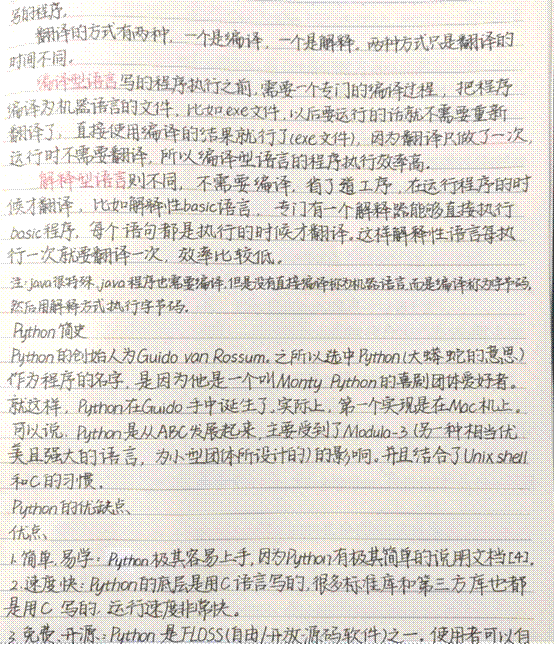 写的程序。
翻译的方式有两种，一个是编译，一个是解释。两种方式只是翻译的
时间不同。
编译型语言写的程序执行之前，需要一个专门的编译过程，把程序
编译为机器语言的文件，比如exe文件，以后要运行的话就不需要重新
翻译了，直接使用编译的结果就行了(exe文件)，因为翻译只做了一次，
运行时不需要翻译，所以编译型语言的程序执行效率高。
解释型语言则不同，不需要编译，省了道工序，在运行程序的时
候才翻译，比如解释性basic语言，专门有一个解释器能够直接执行
basic程序，每个语句都是执行的时候才翻译。这样解释性语言每执
行一次就要翻译一次，效率比较低。
注：java很特殊，java程序也需要编译，但是没有直接编译称为机器语言，而是编译称为字节码，
然后用解释方式执行字节码。
Python简史
Python的创始人为Guido van Rossum。之所以选中Python(大蟒蛇的意思)
作为程序的名字，是因为他是一个叫Monty Python的喜剧团体爱好者。
就这样，Python在Guido手中诞生了。实际上，第一个实现是在Mac机上。
可以说，Python是从ABC发展起来，主要受到了Modula-3(另一种相当优
美且强大的语言，为小型团体所设计的)的影响。并且结合了Unix shell
和C的习惯。
Python的优缺点
优点
1.简单、易学：Python极其容易上手，因为Python有极其简单的说明文档[4]。
2.速度快：Python的底层是用C语言写的，很多标准库和第三方库也都
是用C写的，运行速度非常快。
3.免费、开源：Python是FLOSS(自由/开放源码软件)之一。使用者可以自